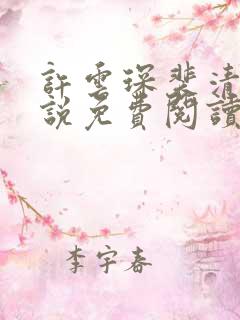 許雲琛裴清
說免費閱讀
李宇春